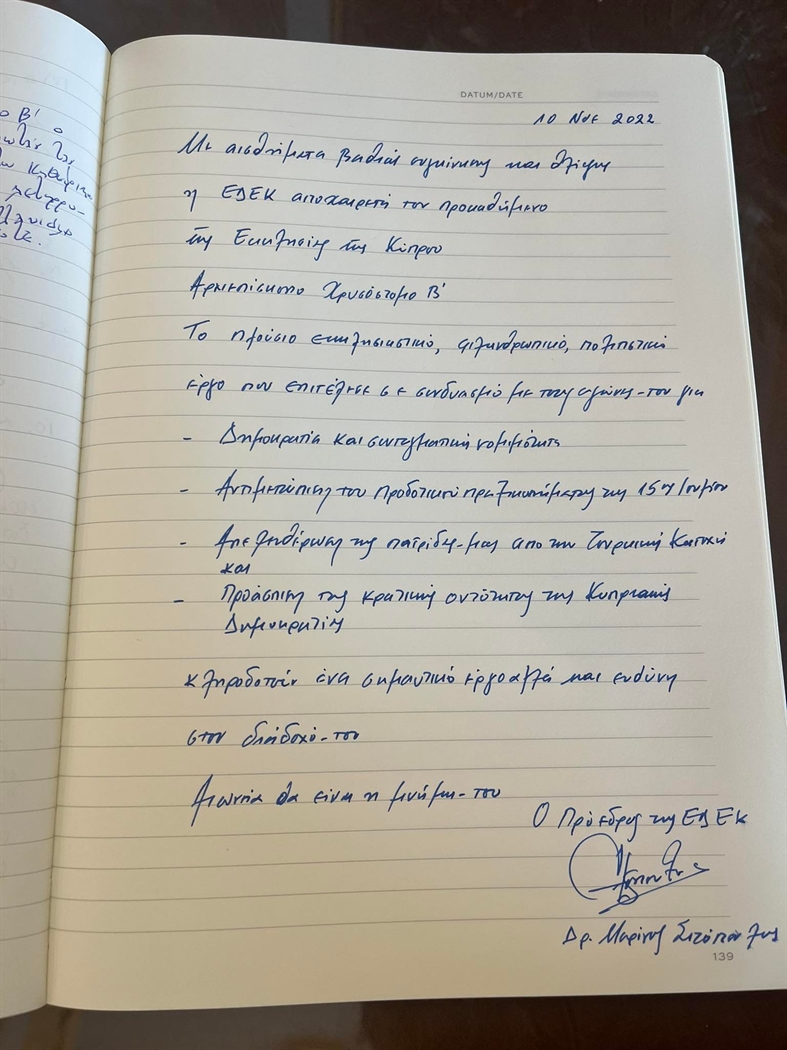 DATUM/DATE
10 Νοε 2022
Με αισθήματα βαθιάς συγκίνησης και θλίψης
η ΕΔΕΚ αποχαιρετά τον προκαθήμενο
της Εκκλησίας της Κύπρου
Αρχιεπίσκοπο Χρυσόστομο Β'
Το πλούσιο εκκλησιαστικό, φιλανθρωπικό, πολιτιστικό
έργο που επιτέλεσε σε συνδυασμό με τους αγώνες-του για
- Δημοκρατία και συνταγματική νομιμότητα
- Αντιμετώπιση του προδοτικού πραξικοπήματος της 15ης Ιουλίου
- Απελευθέρωση της πατρίδας-μας από την Τουρκική Κατοχή
και
- Προάσπιση της κρατικής οντότητας της Κυπριακής
Δημοκρατίας
κληροδοτούν ένα σημαντικό έργο αλλά και ευθύνη
στον διάδοχό-του
Αιωνία θα είναι η μνήμη-του
Ο Πρόεδρος της ΕΔΕΚ
Δρ. Μαρίνος Σιζόπουλος
139
Β' ο